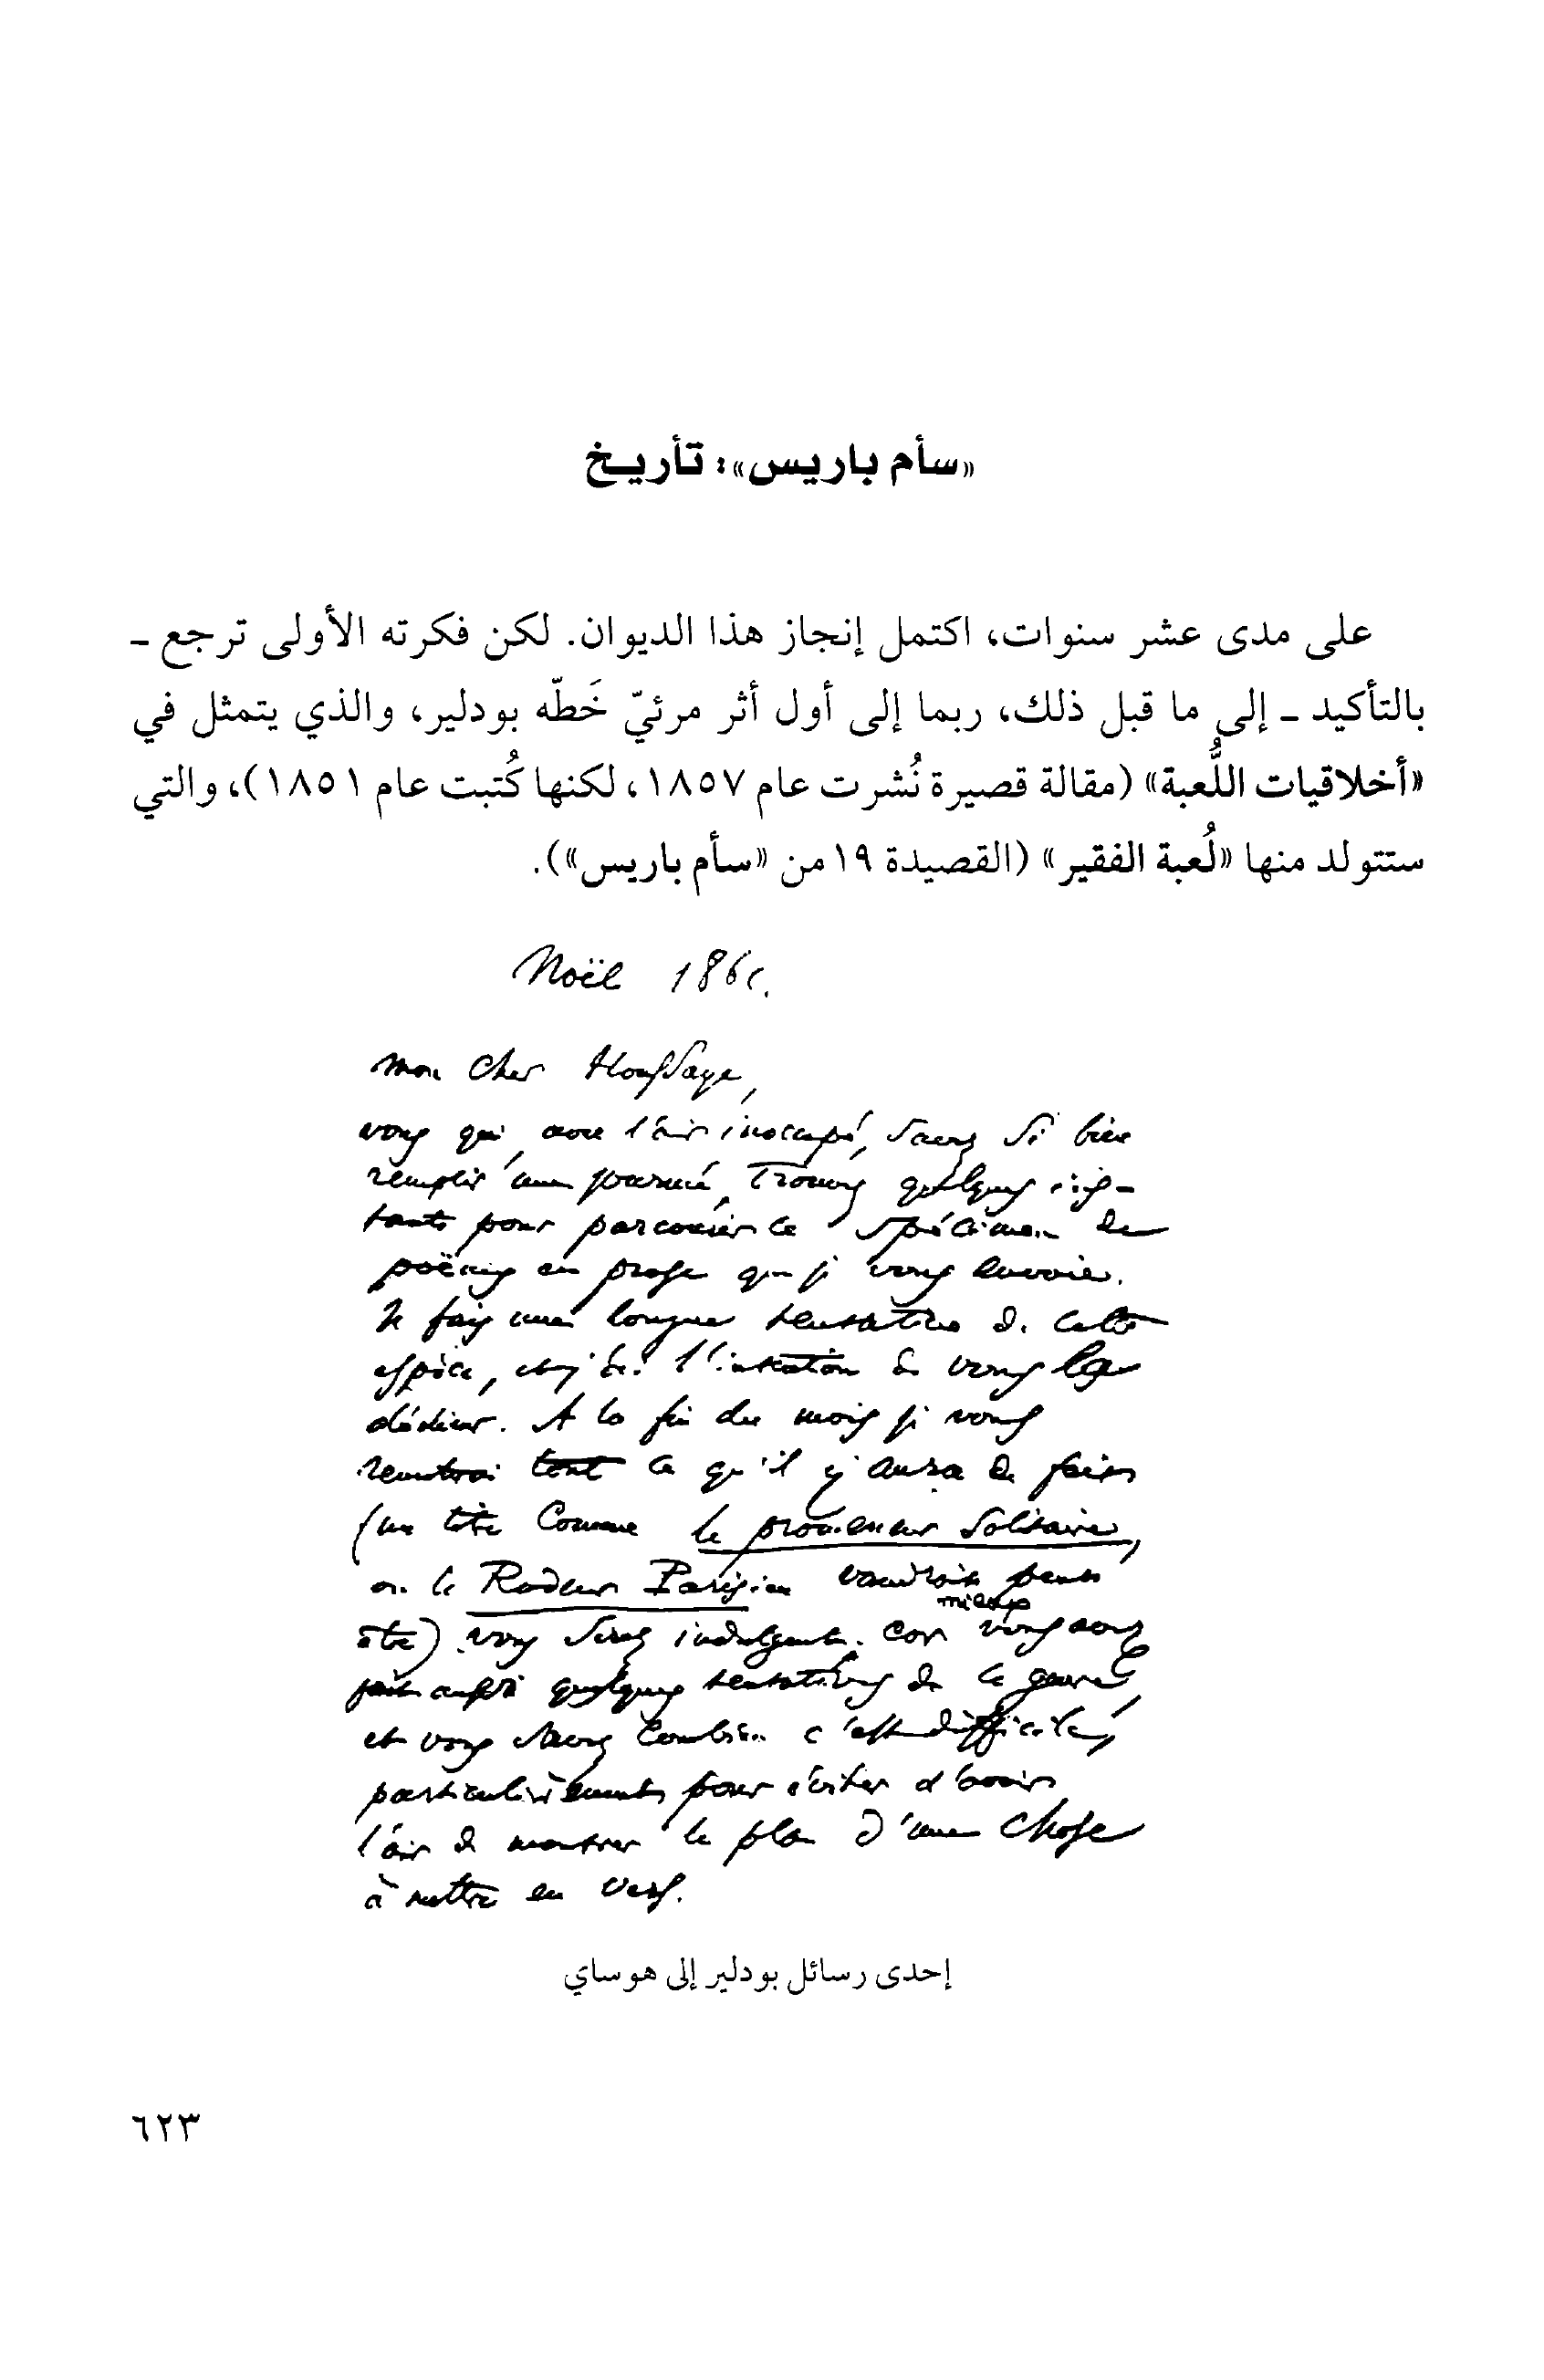 «سأم باريس»: تأريخ
على مدى عشر سنوات، اكتمل إنجاز هذا الديوان. لكن فكرته الأولى ترجع -
بالتأكيد - إلى ما قبل ذلك، ربما إلى أول أثر مرئيّ خَطّه بودلير، والذي يتمثل في
«أخلاقيات اللُّعبة» (مقالة قصيرة نُشرت عام ١٨٥٧، لكنها كُتبت عام ١٨٥١)، والتي
ستتولد منها «لُعبة الفقير» (القصيدة ١٩ من «سأم باريس»).
Noël 186
mon cher Houssaye,
vous qui, avec l'air inoccupé, savez si bien
remplir une journée, trouvez quelques ins-
tants pour parcourir ce spécimen de
poëmes en prose que je vous envoie.
Je fais une longue tentative de cette
espèce, et j'ai l'intention de vous la
dédier. A la fin du mois je vous
remettrai tout ce qu'il y aura de fait
(un titre comme le promeneur solitaire,
ou le Rodeur Parisien vaudrait peut
mieux
être) vous serez indulgent. car vous avez
fait aussi quelques tentatives de ce genre
et vous savez combien c'est difficile,
particulièrement pour éviter d'avoir
l'air de montrer le plan d'une chose
à mettre en vers.
إحدى رسائل بودلير إلى هوساي
٦٢٣